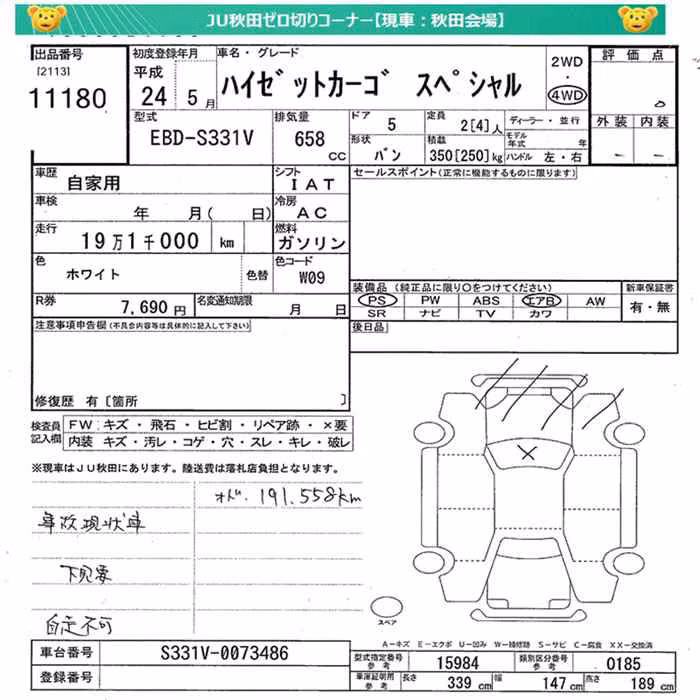 JU秋田ゼロ切りコーナー【現車：秋田会場】
出品番号 初度登録年月 車名・グレード 2WD・4WD 評価点
[2113]
11180
平成
24 5月
ハイゼットカーゴ スペシャル
外装 内装
型式 EBD-S331V
排気量 658 CC
ドア 5
定員 2[4]人
ディーラー・並行
形状 バン
積載 350[250]kg
モデル年式 年
ハンドル 左・右
車歴 自家用
シフト IAT
セールスポイント(正常に機能するものに限ります)
車検 年 月( 日)
冷房 AC
走行 19万1千000 km
燃料 ガソリン
色 ホワイト 色替
色コード W09
装備品 (純正品に限り○をつけてください) 新車保証書
PS PW ABS エアB AW 有・無
SR ナビ TV カワ
R券 7,690円
名変通知期限 月 日
後日品
注意事項申告欄(不具合内容等は具体的に記入して下さい)
修復歴 有[箇所 ]
検査員記入欄
FW：キズ・飛石・ヒビ割・リペア跡・×要
内装 キズ・汚レ・コゲ・穴・スレ・キレ・破レ
※現車はJU秋田にあります。陸送費は落札店負担となります。
オド. 191.558km
事故現状車
下見要
自走不可
スペア
A－キズ E－エクボ U－凹み W－補修跡 S－サビ C－腐食 XX－交換済
車台番号 S331V-0073486
型式指定番号参考 15984
類別区分番号参考 0185
登録番号
車庫証明用参考 長さ 339 cm 幅 147 cm 高さ 189 cm